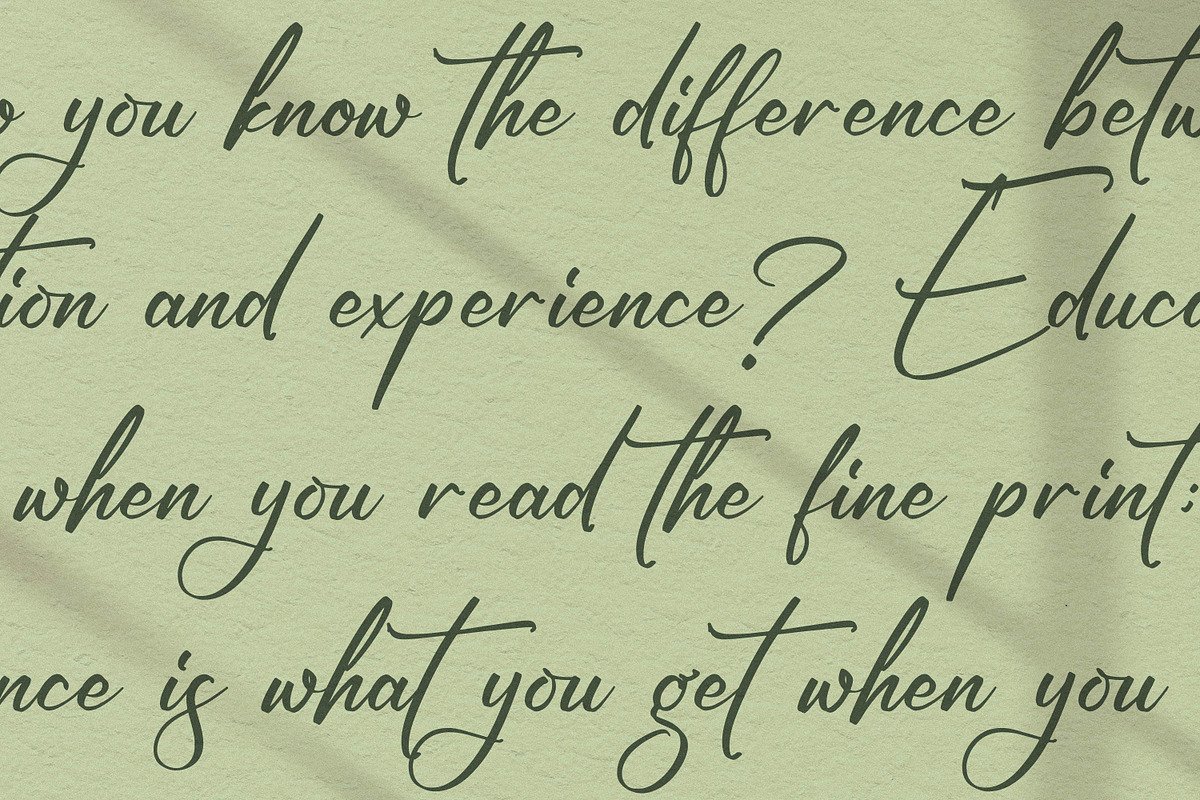 o you know the difference betw
tion and experience? Educa
when you read the fine print;
nce is what you get when you